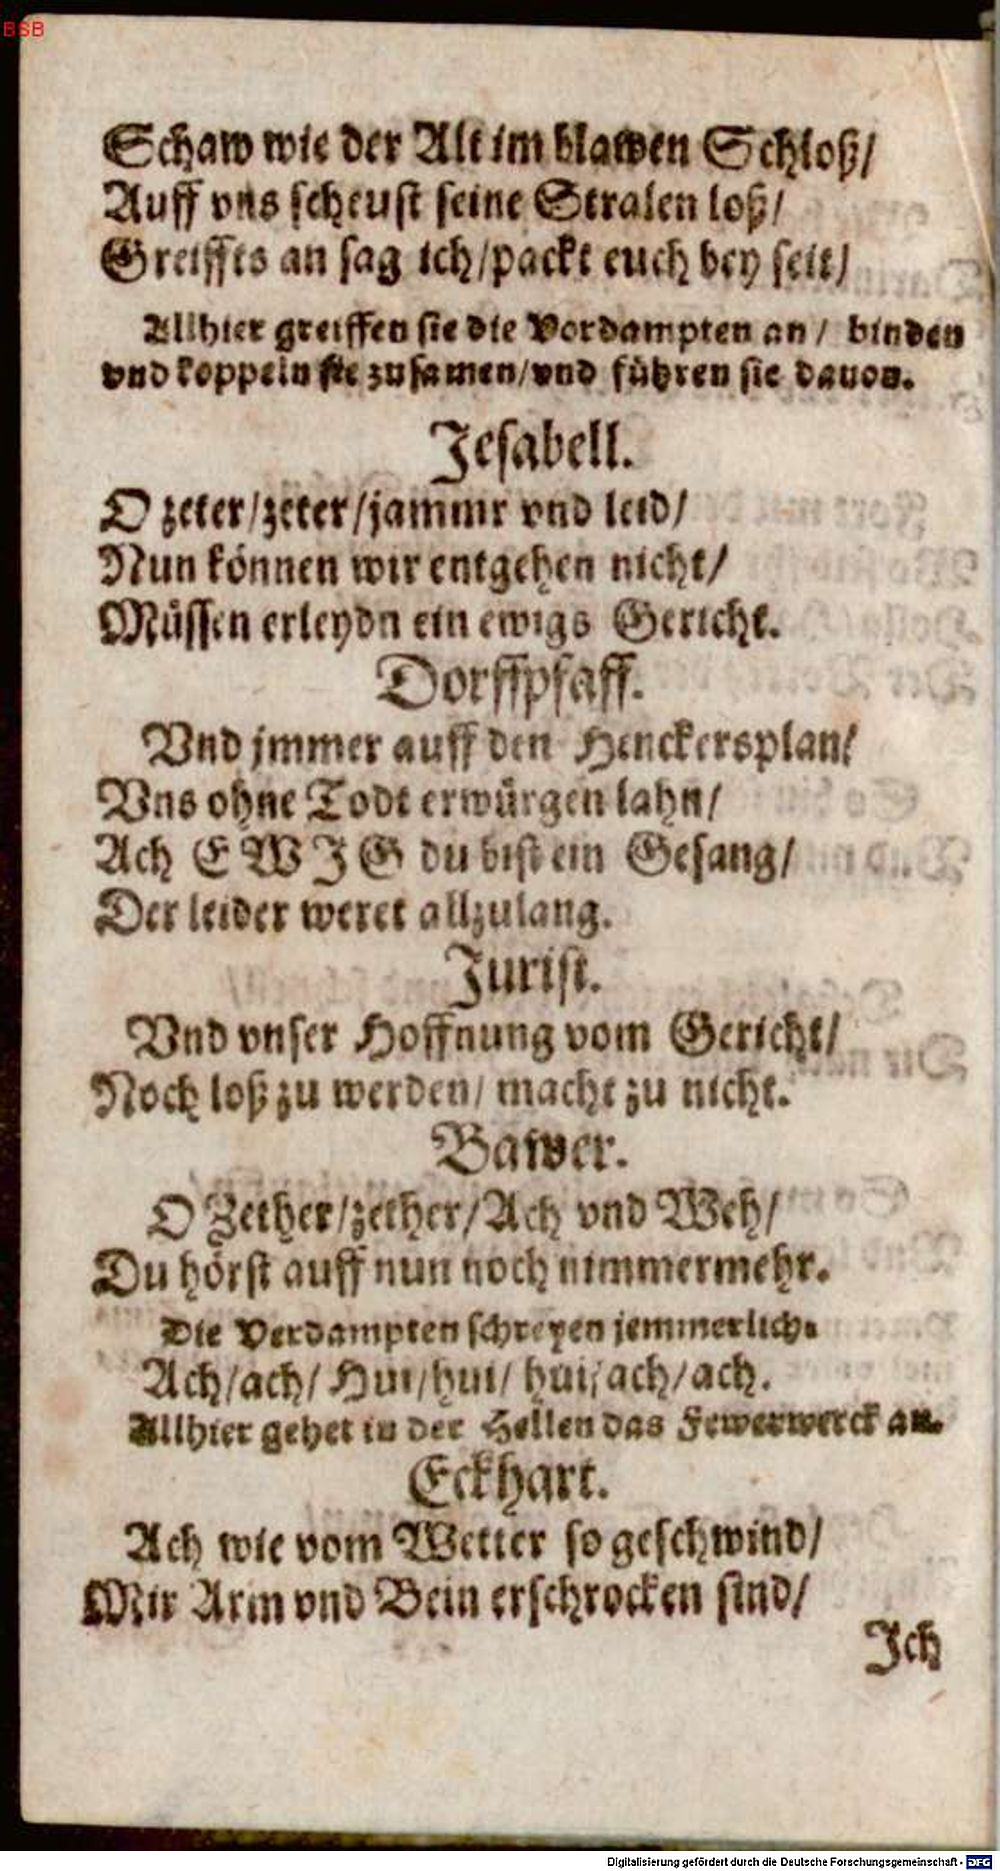 BSB
Schaw wie der Alt im blawen Schloß/
Auff vns scheust seine Stralen loß/
Greiffts an sag ich/packt euch bey seit/
Allhier greiffen sie die Verdampten an/ binden
vnd koppeln sie zusamen/vnd führen sie dauon.
Jesabell.
O zeter/zeter/jammr vnd leid/
Nun können wir entgehen nicht/
Müssen erleydn ein ewigs Gericht.
Dorffpfaff.
Vnd jmmer auff den Henckersplan/
Vns ohne Todt erwürgen lahn/
Ach EWJG du bist ein Gesang/
Der leider weret allzulang.
Jurist.
Vnd vnser Hoffnung vom Gericht/
Noch loß zu werden/ macht zu nicht.
Bawer.
O Zether/zether/Ach vnd Weh/
Du hörst auff nun noch nimmermehr.
Die Verdampten schreyen jemmerlich.
Ach/ach/ Hui/hui/ hui/ach/ach.
Allhier gehet in der Hellen das Fewerwerck an.
Eckhart.
Ach wie vom Wetter so geschwind/
Mir Arm vnd Bein erschrocken sind/
Jch
Digitalisierung gefördert durch die Deutsche Forschungsgemeinschaft - DFG